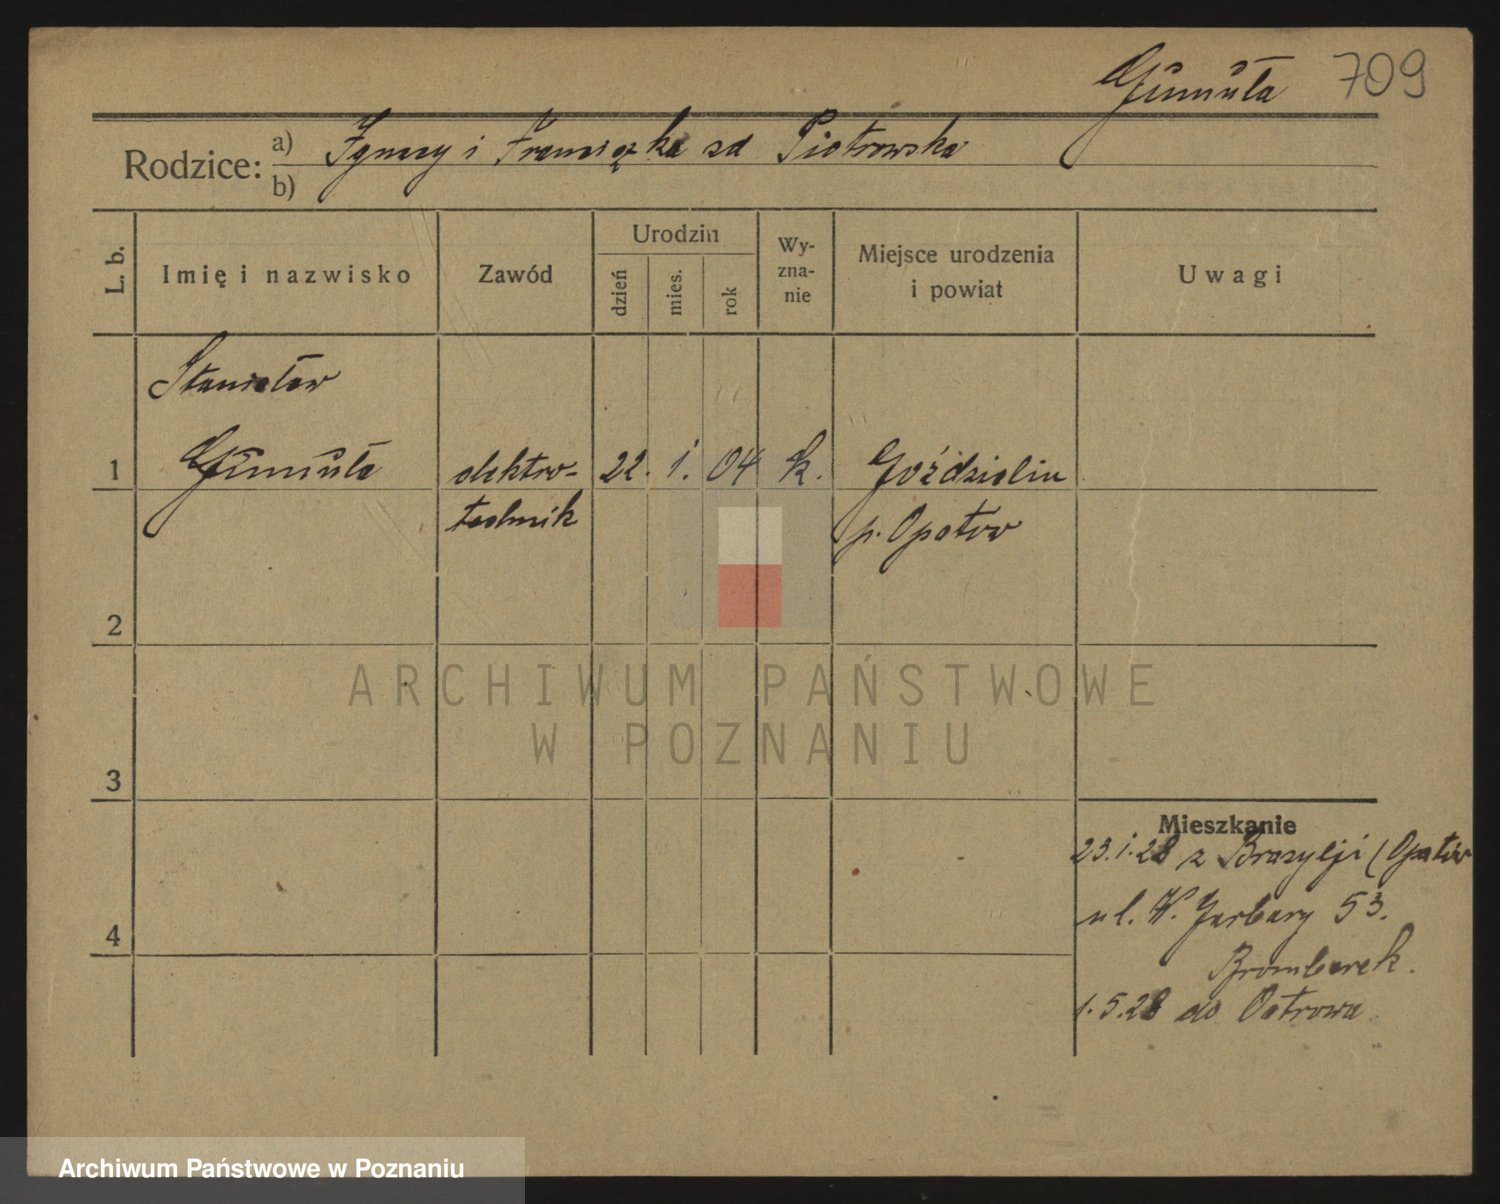 Gumuła 709
Rodzice: a) Ignacy i Franciszka zd Piotrowska
b)
L. b.
Imię i nazwisko
Zawód
Urodzin
dzień
mies.
rok
Wy-
zna-
nie
Miejsce urodzenia
i powiat
Uwagi
Stanisław
1 Gumuła elektro- 22. 1. 04 k. Goździelin
technik p. Opatów
2
ARCHIWUM PAŃSTWOWE
W POZNANIU
3
Mieszkanie
23.1.28 z Brazylji (Opatów
ul. W. Garbary 53.
4
Bromberek.
1.5.28 do Ostrowa
Archiwum Państwowe w Poznaniu